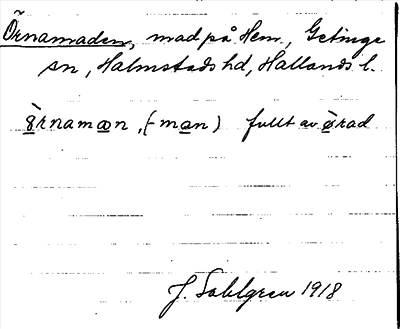 Örnamaden, mad på Hem., Getinge
sn, Halmstads hd, Hallands l.
ö̀rnamæn, (-man) fullt av ö̀rad
J. Sahlgren 1918